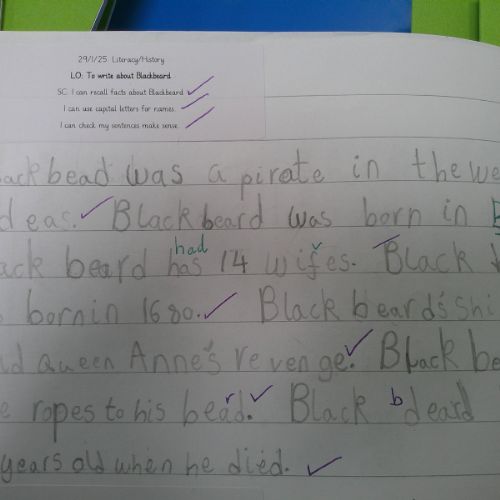 29/1/25 Literacy/History
LO: To write about Blackbeard
SC: I can recall facts about Blackbeard
I can use capital letters for names.
I can check my sentences make sense.
ack bead was a pirate in the we
d eas. Blackbeard was born in B
had
ack beard has 14 wifes. Black
v
bornin 1680. Black beard's shi
d queen Anne's revenge. Black be
r b
e ropes to his bead. Black deard
years old when he died.